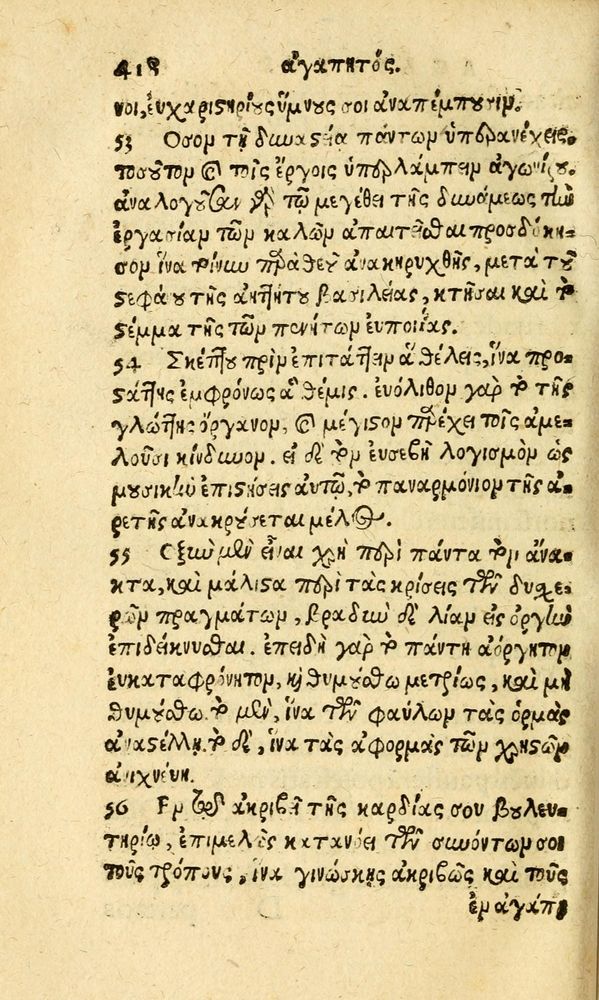 418 ἀγαπητός.
νοι, ἐυχαριστηρίους ὕμνους σοι ἀναπέμπουσιν.
53 Ὅσον τῇ δυναστεία πάντων ὑπερανέχεις,
τοσοῦτον καὶ τοῖς ἔργοις ὑπερλάμπειν ἀγωνίζου.
ἀναλογοῦσαν γὰρ τῷ μεγέθει τῆς δυνάμεως τὴν
ἐργασίαν τῶν καλῶν ἀπαιτεῖσθαι προσδόκη-
σον ἵνα παρὰ θεῷ ἀνακηρυχθῆς, μετὰ τοῦ
στεφάνου τῆς ἀηττήτου βασιλείας, κτῆσαι καὶ τὸ
στέμμα τῆς τῶν πενήτων ἐυποιΐας.
54 Σκέπτου πρὶν ἐπιτάττειν ἃ θέλεις, ἵνα προ-
στάττης ἐμφρόνως ἃ θέμις. ἐυόλισθον γὰρ τὸ τῆς
γλώττης ὄργανον, καὶ μέγιστον προξενεῖ τοῖς ἀμε-
λοῦσι κίνδυνον. εἰ δὲ τὸν ἐυσεβῆ λογισμὸν ὡς
μουσικὸν ἐπιστήσεις αὐτῷ, τὸ παναρμόνιον τῆς ἀ-
ρετῆς ἀνακρούσεται μέλος.
55 Οξὺν μὲν εἶναι χρὴ περὶ πάντα τὸν ἄνα-
κτα, καὶ μάλιστα περὶ τὰς κρίσεις τῶν δυσχε-
ρῶν πραγμάτων, βραδὺν δὲ λίαν εἰς ὀργὴν
ἐπιδείκνυσθαι. ἐπειδὴ γὰρ τὸ πάντη ἀόργητον
ἐυκαταφρόνητον, καὶ θυμούσθω μετρίως, καὶ μὴ
θυμούσθω. τὸ μὲν, ἵνα τῶν φαύλων τὰς ὁρμὰς
ἀναστέλλη. τὸ δὲ, ἵνα τὰς ἀφορμὰς τῶν χρηστῶν
ἀνιχνέυη.
56 Εν τῷ ἀκριβεῖ τῆς καρδίας σου βουλευ-
τηρίῳ, ἐπιμελῶς κατανόει τῶν συνόντων σοι
τοὺς τρόπους, ἵνα γινώσκης ἀκριβῶς καὶ τοὺς
ἐν ἀγάπῃ